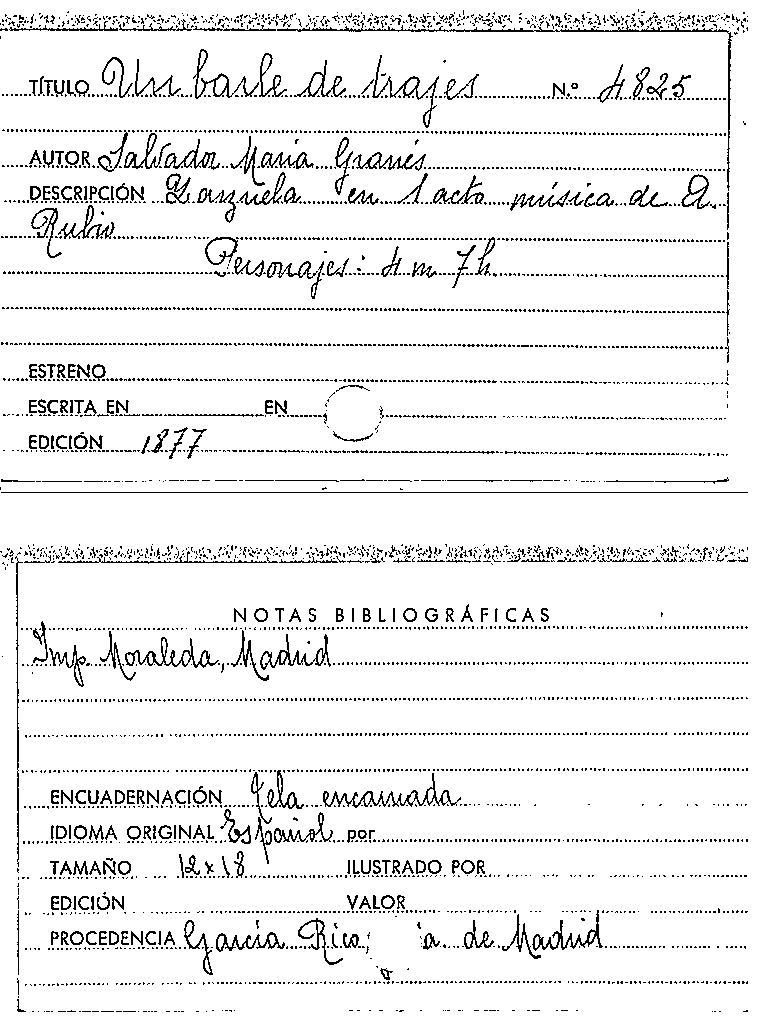 TÍTULO Un baile de trajes N.º 4825
AUTOR Salvador María Granés
DESCRIPCIÓN Zarzuela en 1 acto música de A.
Rubio
Personajes: 4 m 7 h.
ESTRENO
ESCRITA EN EN
EDICIÓN 1877
NOTAS BIBLIOGRÁFICAS
Imp. Moraleda, Madrid
ENCUADERNACIÓN Tela encarnada
IDIOMA ORIGINAL Español por
TAMAÑO 12 x 18 ILUSTRADO POR
EDICIÓN VALOR
PROCEDENCIA García Rico, a. de Madrid